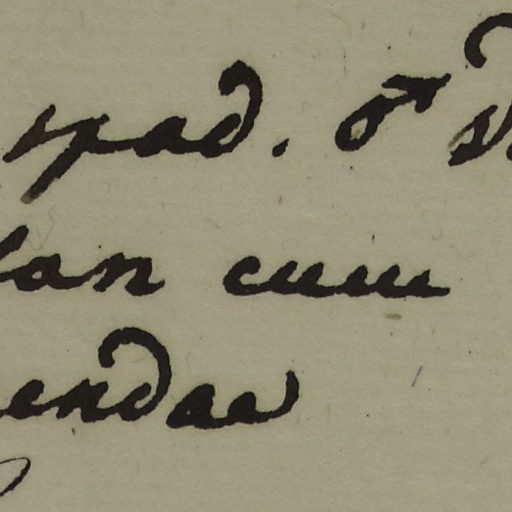 spad. ♂
lan cum
endae